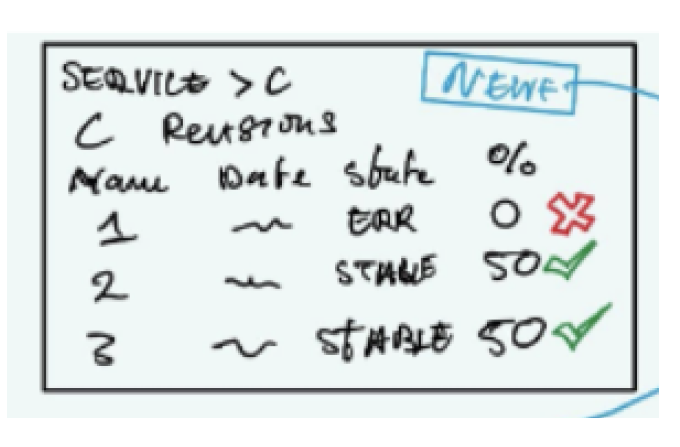 SERVICE > C
NEUE
C Revisions
Name Date State %
1 ERR 0
2 STABLE 50
3 STABLE 50